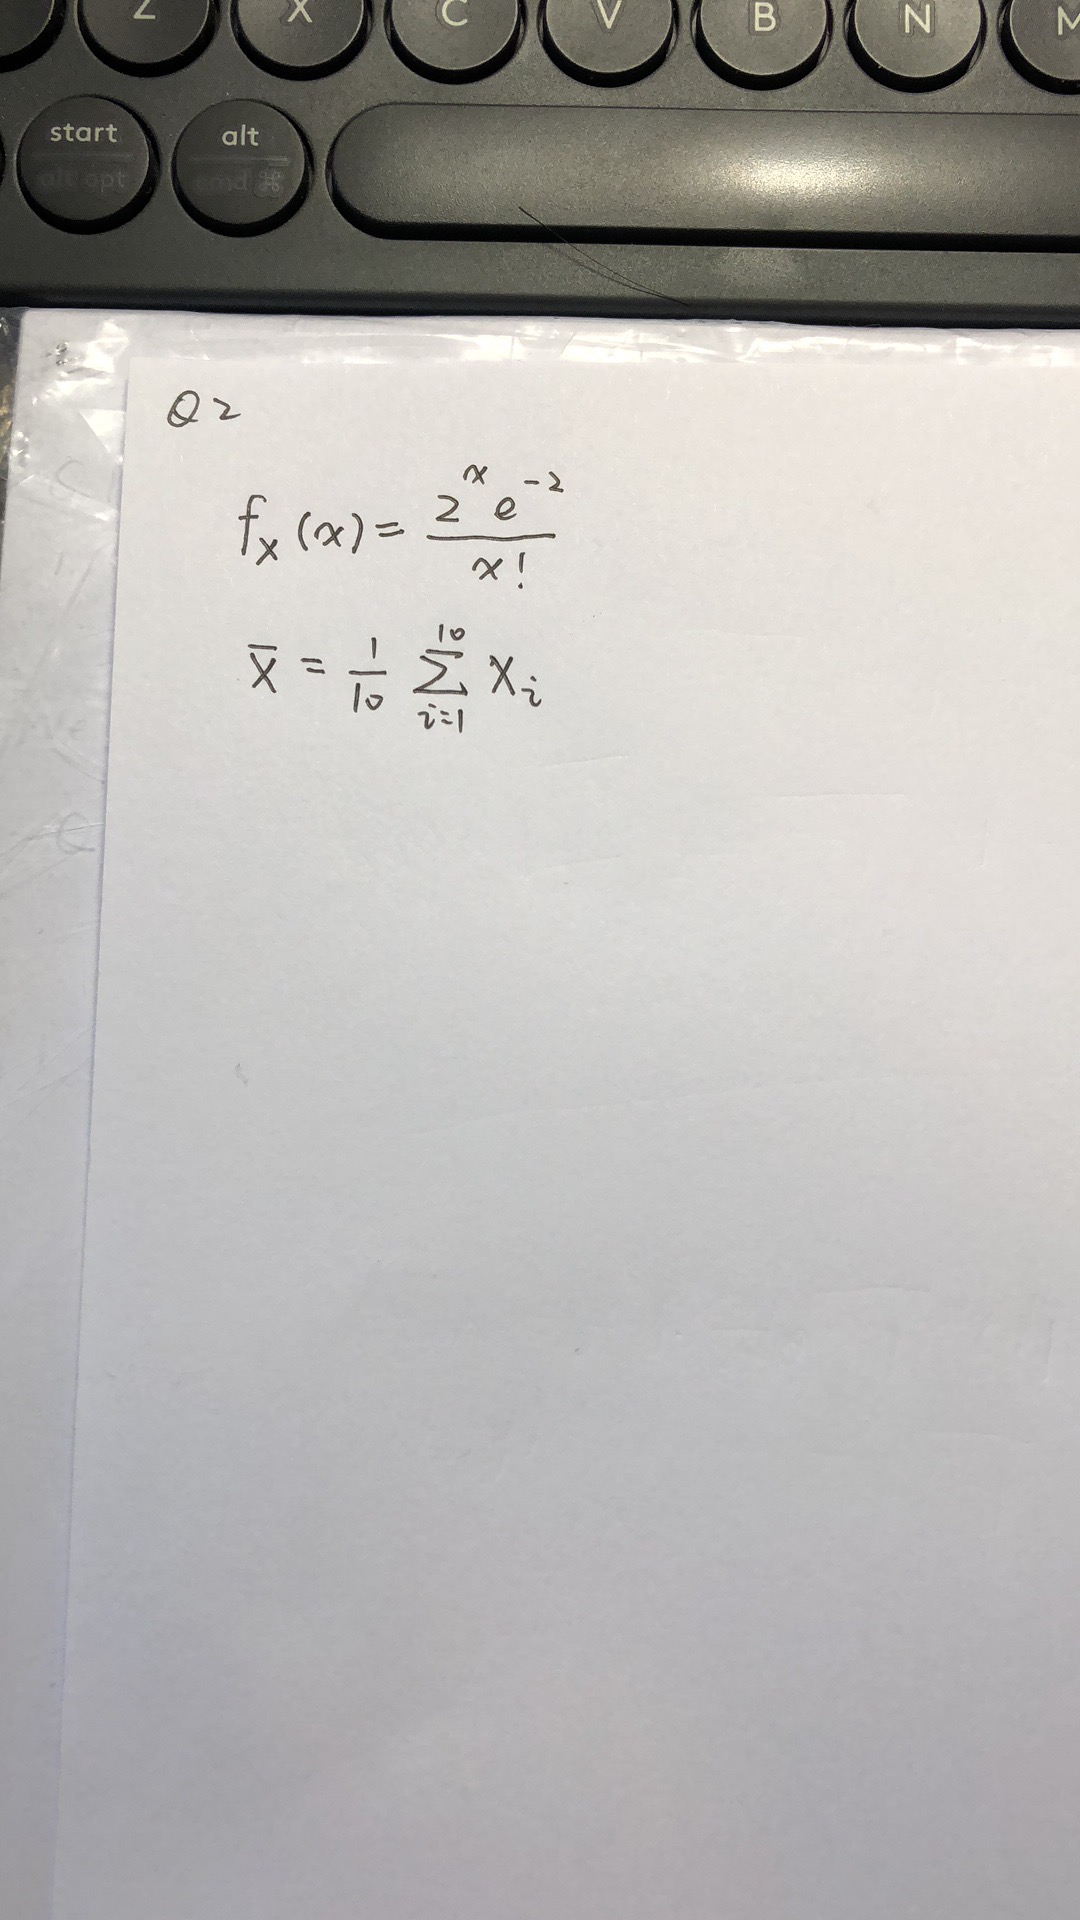 Z X C V B N M
start alt
alt opt cmd ⌘
Q2
fₓ(x) = 2ˣe⁻² / x!
X̄ = 1/10 ∑_{i=1}^{10} Xᵢ